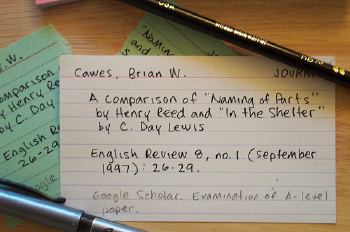 Cawes, Brian W. JOURN
A comparison of "Naming of Parts"
by Henry Reed and "In the Shelter"
by C. Day Lewis
English Review 8, no. 1 (September
1997): 26-29.
Google Scholar. Examination of A-level
paper.
W.
comparison
by Henry Re
by C. Day
English Re
26-29.
oogle
"Naming
and